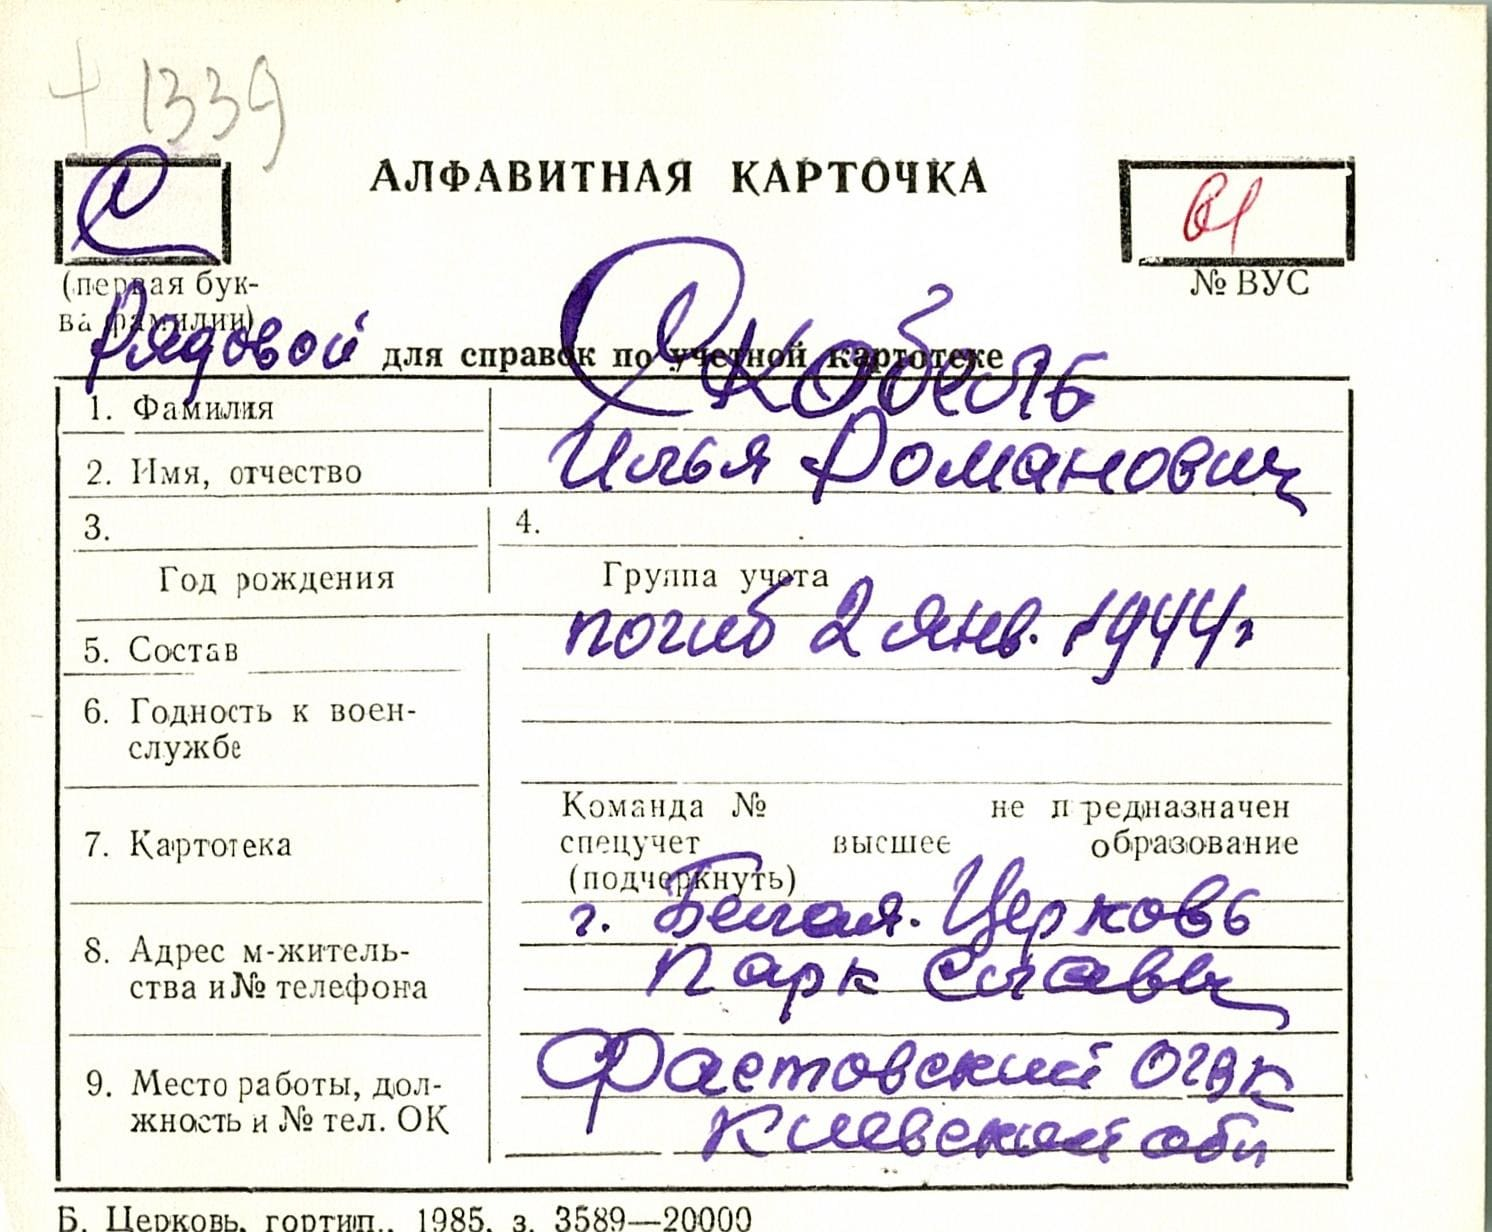 + 1339
С
АЛФАВИТНАЯ КАРТОЧКА
61
(первая бук-
ва фамилии)
№ ВУС
Рядовой
для справок по учетной картотеке
1. Фамилия Скобель
2. Имя, отчество Илья Романович
3. 4.
Год рождения Группа учета
5. Состав погиб 2 янв. 1944г
6. Годность к воен-
службе
Команда № не предназначен
7. Картотека спецучет высшее образование
(подчеркнуть)
г. Белая. Церковь
8. Адрес м-житель- Парк Славы
ства и № телефона
9. Место работы, дол- Фастовский ОГВК
жность и № тел. ОК Киевской обл
Б. Церковь, гортип., 1985, з. 3589—20000